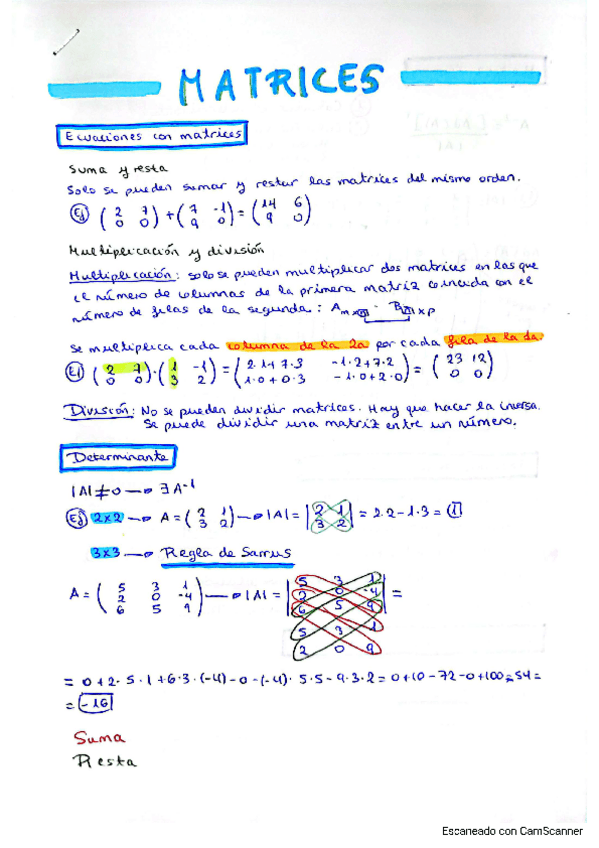 MATRICES
Ecuaciones con matrices
Suma y resta
Solo se pueden sumar y restar las matrices del mismo orden.
Ej (2 7 / 0 0) + (7 -1 / 9 0) = (14 6 / 9 0)
Multiplicación y división
Multiplicación: solo se pueden multiplicar dos matrices en las que
el número de columnas de la primera matriz coincida con el
número de filas de la segunda: A m x n · B n x p
Se multiplica cada columna de la 2a por cada fila de la 1a.
Ej (2 7 / 0 0) · (1 -1 / 3 2) = (2·1+7·3 -1·2+7·2 / 1·0+0·3 -1·0+2·0) = (23 12 / 0 0)
División: No se pueden dividir matrices. Hay que hacer la inversa.
Se puede dividir una matriz entre un número.
Determinante
|A|≠0 → ∃A⁻¹
Ej 2x2 → A = (2 1 / 3 2) → |A| = |2 1 / 3 2| = 2·2-1·3 = 1
3x3 → Regla de Sarrus
A = (5 3 1 / 2 0 -4 / 6 5 9) → |A| = |5 3 1 / 2 0 -4 / 6 5 9| =
5 3 1
2 0 9
= 0+2·5·1+6·3·(-4)-0-(-4)·5·5-9·3·2 = 0+10-72-0+100-54 =
= -16
Suma
Resta
Escaneado con CamScanner